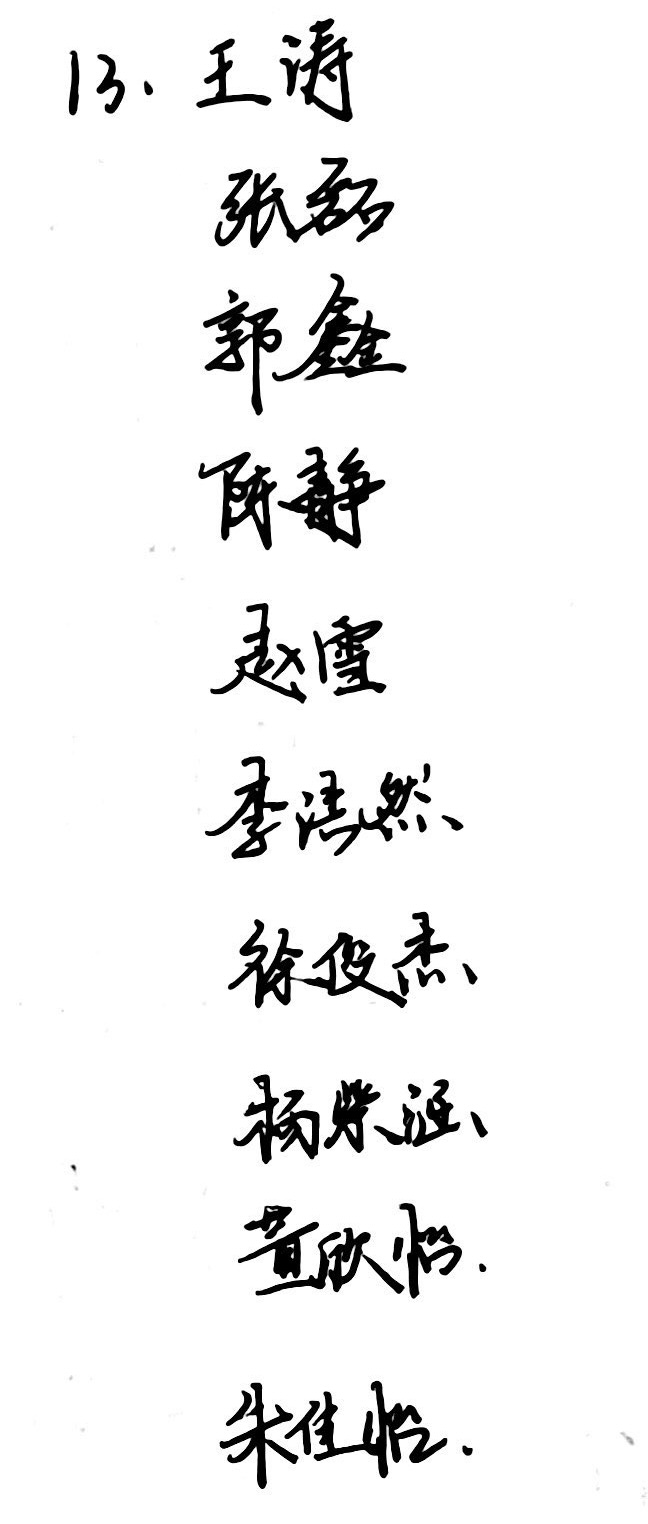 13、王涛
张磊
郭鑫
陈静
赵雪
李浩然、
徐俊杰、
杨紫涵、
黄欣怡.
朱佳怡.